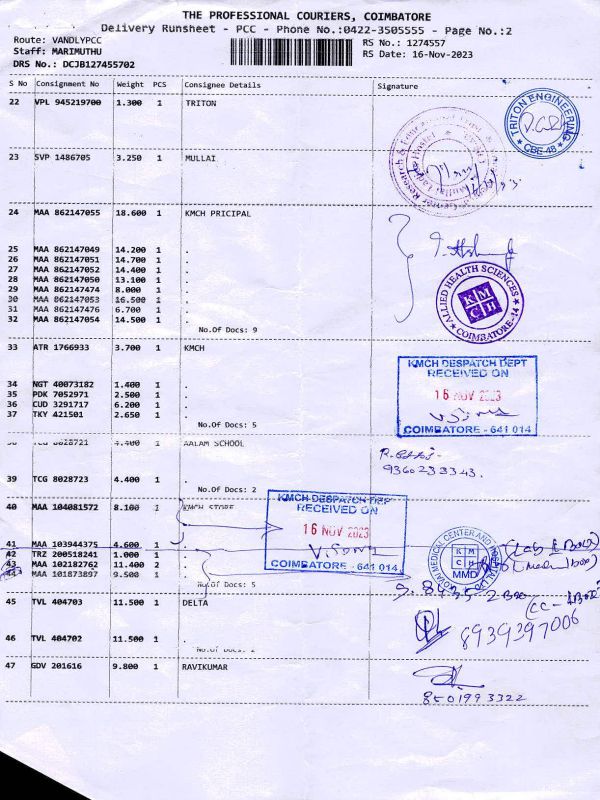 THE PROFESSIONAL COURIERS, COIMBATORE
Delivery Runsheet - PCC - Phone No.:0422-3505555 - Page No.:2
Route: VANDLYPCC
RS No.: 1274557
Staff: MARIMUTHU
RS Date: 16-Nov-2023
DRS No.: DCJB127455702
S No Consignment No Weight PCS Consignee Details Signature
22 VPL 945219700 1.300 1 TRITON
TRITON ENGINEERING
CBE-48
23 SVP 1486705 3.250 1 MULLAI
24 MAA 862147055 18.600 1 KMCH PRICIPAL
25 MAA 862147049 14.200 1 .
26 MAA 862147051 14.700 1 .
27 MAA 862147052 14.400 1 .
28 MAA 862147050 13.100 1 .
29 MAA 862147474 8.000 1 .
30 MAA 862147053 16.500 1 .
31 MAA 862147476 6.700 1 .
32 MAA 862147054 14.500 1 .
No.Of Docs: 9
ALLIED HEALTH SCIENCES
KMCH
COIMBATORE-14
33 ATR 1766933 3.700 1 KMCH
34 NGT 40073182 1.400 1 .
35 PDK 7052971 2.500 1 .
36 CUD 3291717 6.200 1 .
37 TKY 421501 2.650 1 .
No.Of Docs: 5
KMCH DESPATCH DEPT
RECEIVED ON
16 NOV 2023
COIMBATORE - 641 014
38 TCG 8028721 4.400 1 AALAM SCHOOL
9360233343.
39 TCG 8028723 4.400 1 .
No.Of Docs: 2
40 MAA 104081572 8.100 1 KMCH STORE
41 MAA 103944375 4.600 1 .
42 TRZ 200518241 1.000 1 .
43 MAA 102182762 11.400 2 .
MAA 101873897 9.500 1 .
No.Of Docs: 5
KMCH DESPATCH DEPT
RECEIVED ON
16 NOV 2023
COIMBATORE - 641 014
KMCH
MMD
45 TVL 404703 11.500 1 DELTA
8939397006
46 TVL 404702 11.500 1 .
No.Of Docs: 2
47 GDV 201616 9.800 1 RAVIKUMAR
8501993322